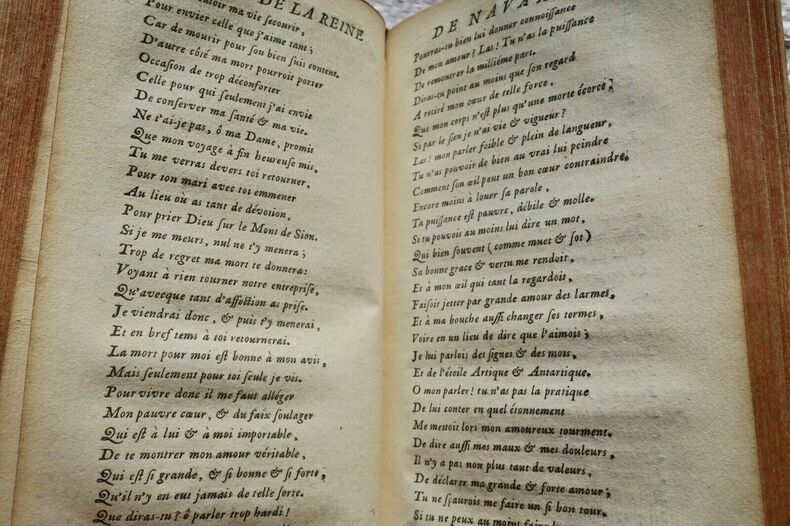 DE LA REINE
ma vie ſecourir,
Pour envier celle que j'aime tant;
Car de mourir pour ſon bien ſuis content.
D'autre côté ma mort pourroit porter
Occaſion de trop déconforter
Celle pour qui ſeulement j'ai envie
De conſerver ma ſanté & ma vie.
Ne t'ai-je pas, ô ma Dame, promit
Que mon voyage à fin heureuſe mis,
Tu me verras devers toi retourner,
Pour ton mari avec toi emmener
Au lieu où as tant de dévotion,
Pour prier Dieu ſur le Mont de Sion.
Si je me meurs, nul ne t'y menera;
Trop de regret ma mort te donnera:
Voyant à rien tourner notre entrepriſe,
Qu'avecque tant d'affection as priſe.
Je viendrai donc, & puis t'y menerai,
Et en bref tems à toi retournerai.
La mort pour moi eſt bonne à mon avis,
Mais ſeulement pour toi ſeule je vis.
Pour vivre donc il me faut alléger
Mon pauvre cœur, & du faix ſoulager
Qui eſt à lui & à moi importable,
De te montrer mon amour véritable,
Qui eſt ſi grande, & ſi bonne & ſi forte,
Qu'il n'y en eut jamais de telle ſorte.
Que diras-tu? ô parler trop hardi!
DE NAVA
Pourrai-tu bien lui donner connoiſſance
De mon amour? Las! Tu n'as la puiſſance
De remontrer la milliéme part.
Diras-tu point au moins que ſon regard
A retiré mon cœur de telle force,
Que mon corps n'eſt plus qu'une morte écorce,
Si par le ſien je n'ai vie & vigueur?
Las! mon parler foible & plein de langueur,
Tu n'as pouvoir de bien au vrai lui peindre
Comment ſon œil peut un bon cœur contraindre.
Encore moins à louer ſa parole,
Ta puiſſance eſt pauvre, débile & molle.
Si tu pouvois au moins lui dire un mot,
Qui bien ſouvent (comme muet & ſot)
Sa bonne grace & vertu me rendoit,
Et à mon œil qui tant la regardoit,
Faiſoit jetter par grande amour des larmes,
Et à ma bouche auſſi changer ſes termes,
Voire en un lieu de dire que l'aimois;
Je lui parlois des ſignes & des mois,
Et de l'étoile Artique & Antartique.
O mon parler! tu n'as pas la pratique
De lui conter en quel étonnement
Me mettoit lors mon amoureux tourment.
De dire auſſi mes maux & mes douleurs,
Il n'y a pas non plus tant de valeurs,
De déclarer ma grande & forte amour;
Tu ne ſçaurois me faire un ſi bon tour.
Si tu ne peux au moins